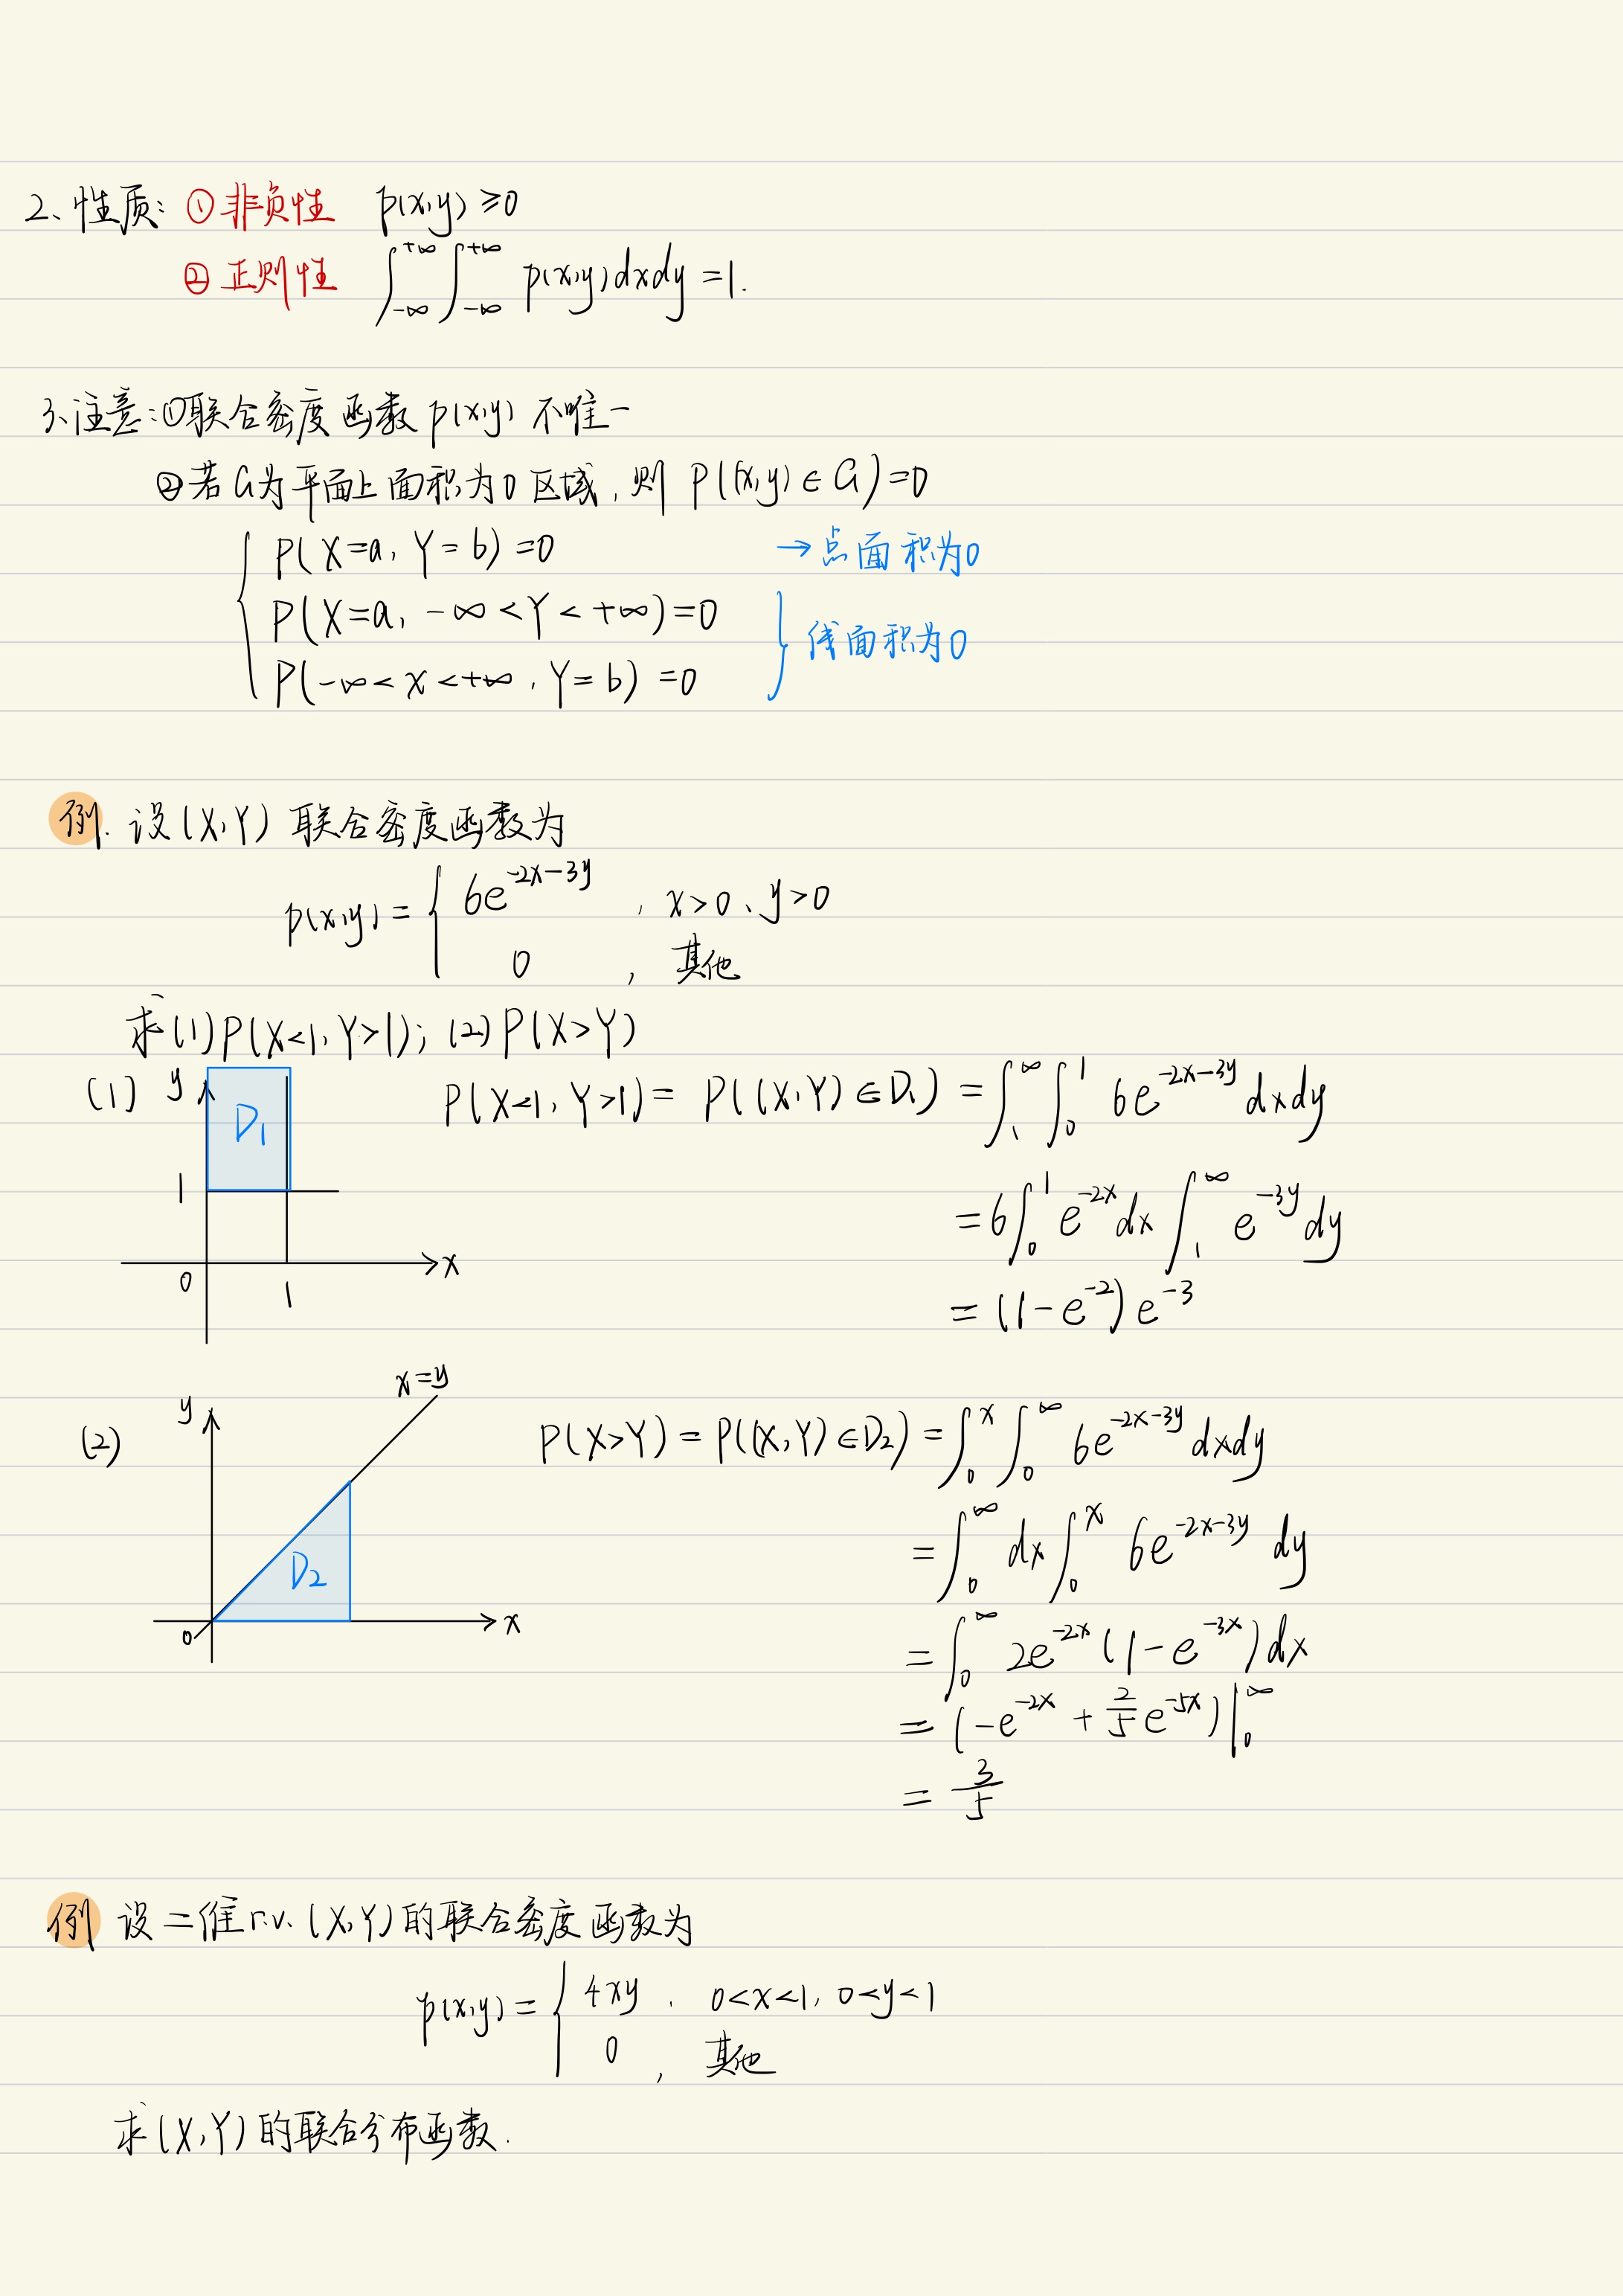 2、性质: ①非负性 p(x,y)≥0
②正则性 ∫_{-∞}^{+∞}∫_{-∞}^{+∞} p(x,y)dxdy=1.
3、注意:①联合密度函数 p(x,y) 不唯一
②若G为平面上面积为0区域,则 P((x,y)∈G)=0
{ P(X=a, Y=b)=0 →点面积为0
P(X=a, -∞<Y<+∞)=0 } 线面积为0
P(-∞<x<+∞, Y=b)=0
例. 设(X,Y) 联合密度函数为
p(x,y)= { 6e^{-2x-3y} , x>0、y>0
0 , 其他
求(1)P(X<1, Y>1); (2)P(X>Y)
(1) y D₁ 1 0 1 x P(X<1, Y>1)= P((X,Y)∈D₁) =∫_1^∞∫_0^1 6e^{-2x-3y}dxdy
=6∫_0^1 e^{-2x}dx∫_1^∞ e^{-3y}dy
= (1-e^{-2})e^{-3}
(2) y x=y D₂ 0 x P(X>Y) = P((X,Y)∈D₂) =∫_0^x∫_0^∞ 6e^{-2x-3y}dxdy
=∫_0^∞ dx∫_0^x 6e^{-2x-3y} dy
=∫_0^∞ 2e^{-2x}(1-e^{-3x})dx
= (-e^{-2x} + 2/5 e^{-5x})|_0^∞
= 3/5
例 设二维r.v. (X,Y)的联合密度函数为
p(x,y)= { 4xy , 0<x<1, 0<y<1
0 , 其他
求(X,Y)的联合分布函数.